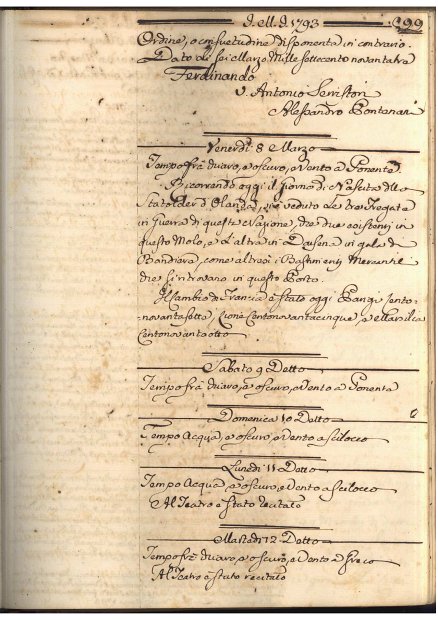 D. M. D. 1793 199
Ordine, o consuetudine disponente in contrario.
Dato li sei Marzo Mille settecento novantatre
Ferdinando
V. Antonio Serristori
Alessandro Pontenani
Venerdì 8 Marzo
Tempo frà chiaro, e oscuro, e Vento a Ponente
Ricorrendo oggi il Giorno di Nascita dello
Statolder d'Olanda, veduto le tre Fregate
in Guerra di questa Nazione, che due esistenti in
questo Molo, e l'altra in Darsena in gala di
Bandiera, come altresì i Bastimenti Mercantili
che si trovano in questo Porto.
Il Cambio di Francia è stato oggi Parigi Cento-
novantasette, Lione Centonovantacinque, e Marsilia
Centonovantaotto
Sabato 9 Detto
Tempo frà chiaro, e oscuro, e Vento a Ponente
Domenica 10 Detto
Tempo Acqua, e oscuro, e Vento a scilocco
Lunedì 11 Detto
Tempo Acqua, e oscuro, e Vento a scilocco
Al Teatro è stato recitato
Martedì 12 Detto
Tempo frà chiaro, e oscuro, e Vento a Greco
Al Teatro è stato recitato